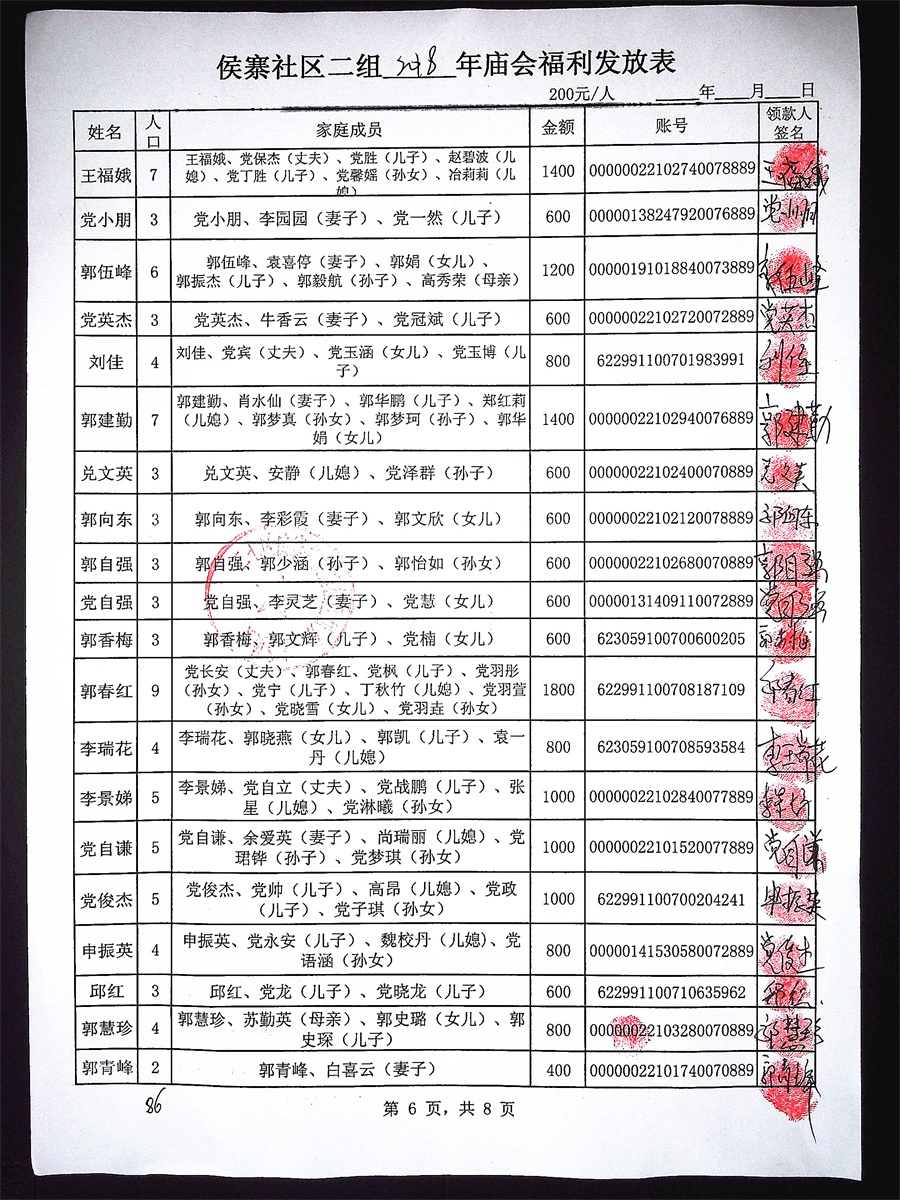 侯寨社区二组2018年庙会福利发放表
200元/人 年 月 日
姓名 人口 家庭成员 金额 账号 领款人签名
王福娥 7 王福娥、党保杰（丈夫）、党胜（儿子）、赵碧波（儿媳）、党丁胜（儿子）、党馨嫕（孙女）、冶莉莉（儿媳） 1400 00000022102740078889
党小朋 3 党小朋、李园园（妻子）、党一然（儿子） 600 00000138247920076889 党小朋
郭伍峰 6 郭伍峰、袁喜停（妻子）、郭娟（女儿）、
郭振杰（儿子）、郭毅航（孙子）、高秀荣（母亲） 1200 00000191018840073889 郭伍峰
党英杰 3 党英杰、牛香云（妻子）、党冠斌（儿子） 600 00000022102720072889 党英杰
刘佳 4 刘佳、党宾（丈夫）、党玉涵（女儿）、党玉博（儿子） 800 622991100701983991 刘佳
郭建勤 7 郭建勤、肖水仙（妻子）、郭华鹏（儿子）、郑红莉（儿媳）、郭梦真（孙女）、郭梦珂（孙子）、郭华娟（女儿） 1400 00000022102940076889 郭建勤
兑文英 3 兑文英、安静（儿媳）、党泽群（孙子） 600 00000022102400070889 兑文英
郭向东 3 郭向东、李彩霞（妻子）、郭文欣（女儿） 600 00000022102120078889 郭向东
郭自强 3 郭自强、郭少涵（孙子）、郭怡如（孙女） 600 00000022102680070889 郭自强
党自强 3 党自强、李灵芝（妻子）、党慧（女儿） 600 00000131409110072889 党自强
郭香梅 3 郭香梅、郭文辉（儿子）、党楠（女儿） 600 623059100700600205 郭香梅
郭春红 9 党长安（丈夫）、郭春红、党枫（儿子）、党羽彤（孙女）、党宁（儿子）、丁秋竹（儿媳）、党羽萱（孙女）、党晓雪（女儿）、党羽垚（孙女） 1800 622991100708187109 郭春红
李瑞花 4 李瑞花、郭晓燕（女儿）、郭凯（儿子）、袁一丹（儿媳） 800 623059100708593584 李瑞花
李景娣 5 李景娣、党自立（丈夫）、党战鹏（儿子）、张星（儿媳）、党淋曦（孙女） 1000 00000022102840077889
党自谦 5 党自谦、余爱英（妻子）、尚瑞丽（儿媳）、党珺铧（孙子）、党梦琪（孙女） 1000 00000022101520077889 党自谦
党俊杰 5 党俊杰、党帅（儿子）、高昂（儿媳）、党政（儿子）、党子琪（孙女） 1000 622991100700204241 申振英
申振英 4 申振英、党永安（儿子）、魏校丹（儿媳）、党语涵（孙女） 800 00000141530580072889 党俊杰
邱红 3 邱红、党龙（儿子）、党晓龙（儿子） 600 622991100710635962
郭慧珍 4 郭慧珍、苏勤英（母亲）、郭史璐（女儿）、郭史琛（儿子） 800 00000022103280070889 郭慧珍
郭青峰 2 郭青峰、白喜云（妻子） 400 00000022101740070889 郭青峰
86 第 6 页，共 8 页